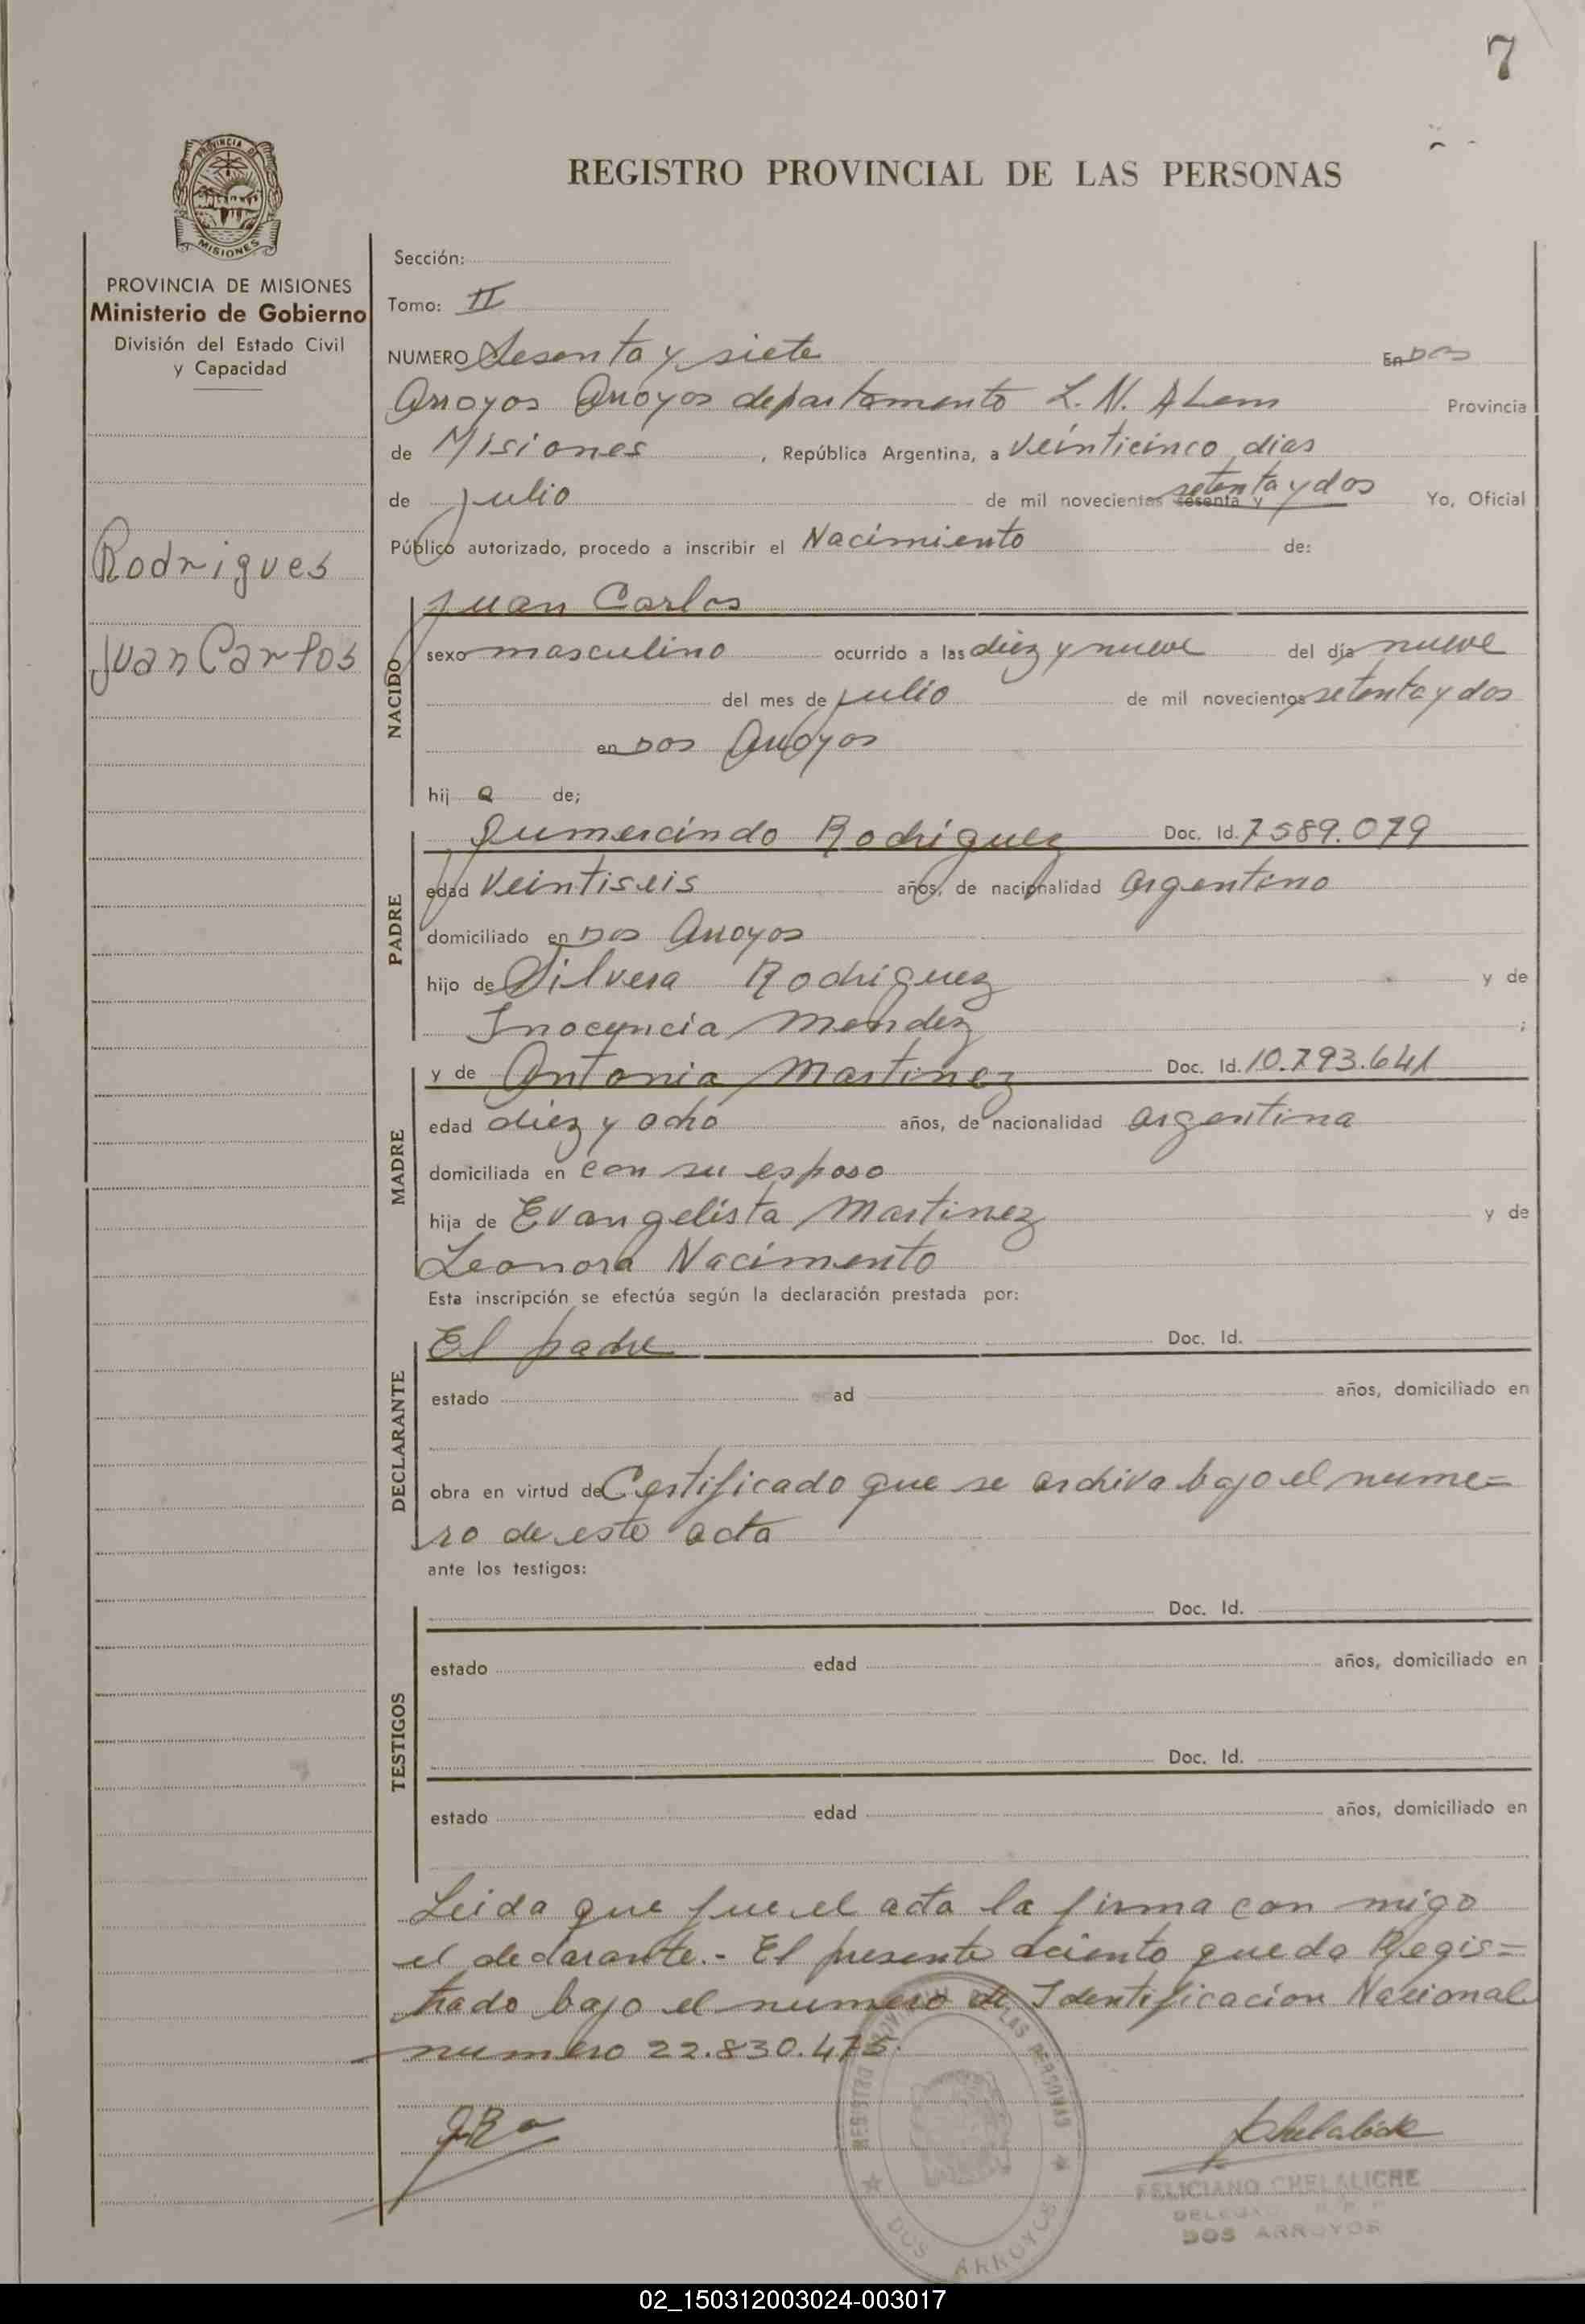 7
PROVINCIA DE
MISIONES
REGISTRO PROVINCIAL DE LAS PERSONAS
PROVINCIA DE MISIONES
Ministerio de Gobierno
División del Estado Civil
y Capacidad
Rodrigues
Juan Carlos
Sección:
Tomo: II
NUMERO Sesenta y siete En Dos
Arroyos Arroyos departamento L. N. ALem Provincia
de Misiones , República Argentina, a veinticinco dias
de julio de mil novecientos sesenta y setenta y dos Yo, Oficial
Público autorizado, procedo a inscribir el Nacimiento de:
NACIDO
Juan Carlos
sexo masculino ocurrido a las diez y nueve del día nueve
del mes de julio de mil novecientos setenta y dos
en Dos Arroyos
hij o de;
PADRE
Gumercindo Rodriguez Doc. Id. 7589.079
edad Veintiseis años, de nacionalidad argentino
domiciliado en Dos Arroyos
hijo de Silvera Rodriguez y de
Inocencia Mendez ;
MADRE
y de Antonia Martinez Doc. Id. 10.793.641
edad diez y ocho años, de nacionalidad argentina
domiciliada en con su esposo
hija de Evangelista Martinez y de
Leonora Nacimento
Esta inscripción se efectúa según la declaración prestada por:
DECLARANTE
El padre Doc. Id.
estado ad años, domiciliado en
obra en virtud de Certificado que se archiva bajo el nume=
ro de este acta
ante los testigos:
TESTIGOS
Doc. Id.
estado edad años, domiciliado en
Doc. Id.
estado edad años, domiciliado en
Leida que fue el acta la firma con migo
el declarante.- El presente aciento queda Regis=
trado bajo el numero de Identificacion Nacional
numero 22.830.475.
REGISTRO PROVINCIAL DE LAS PERSONAS
DOS ARROYOS
FELICIANO CHELALICHE
DOS ARROYOS
02_150312003024-003017